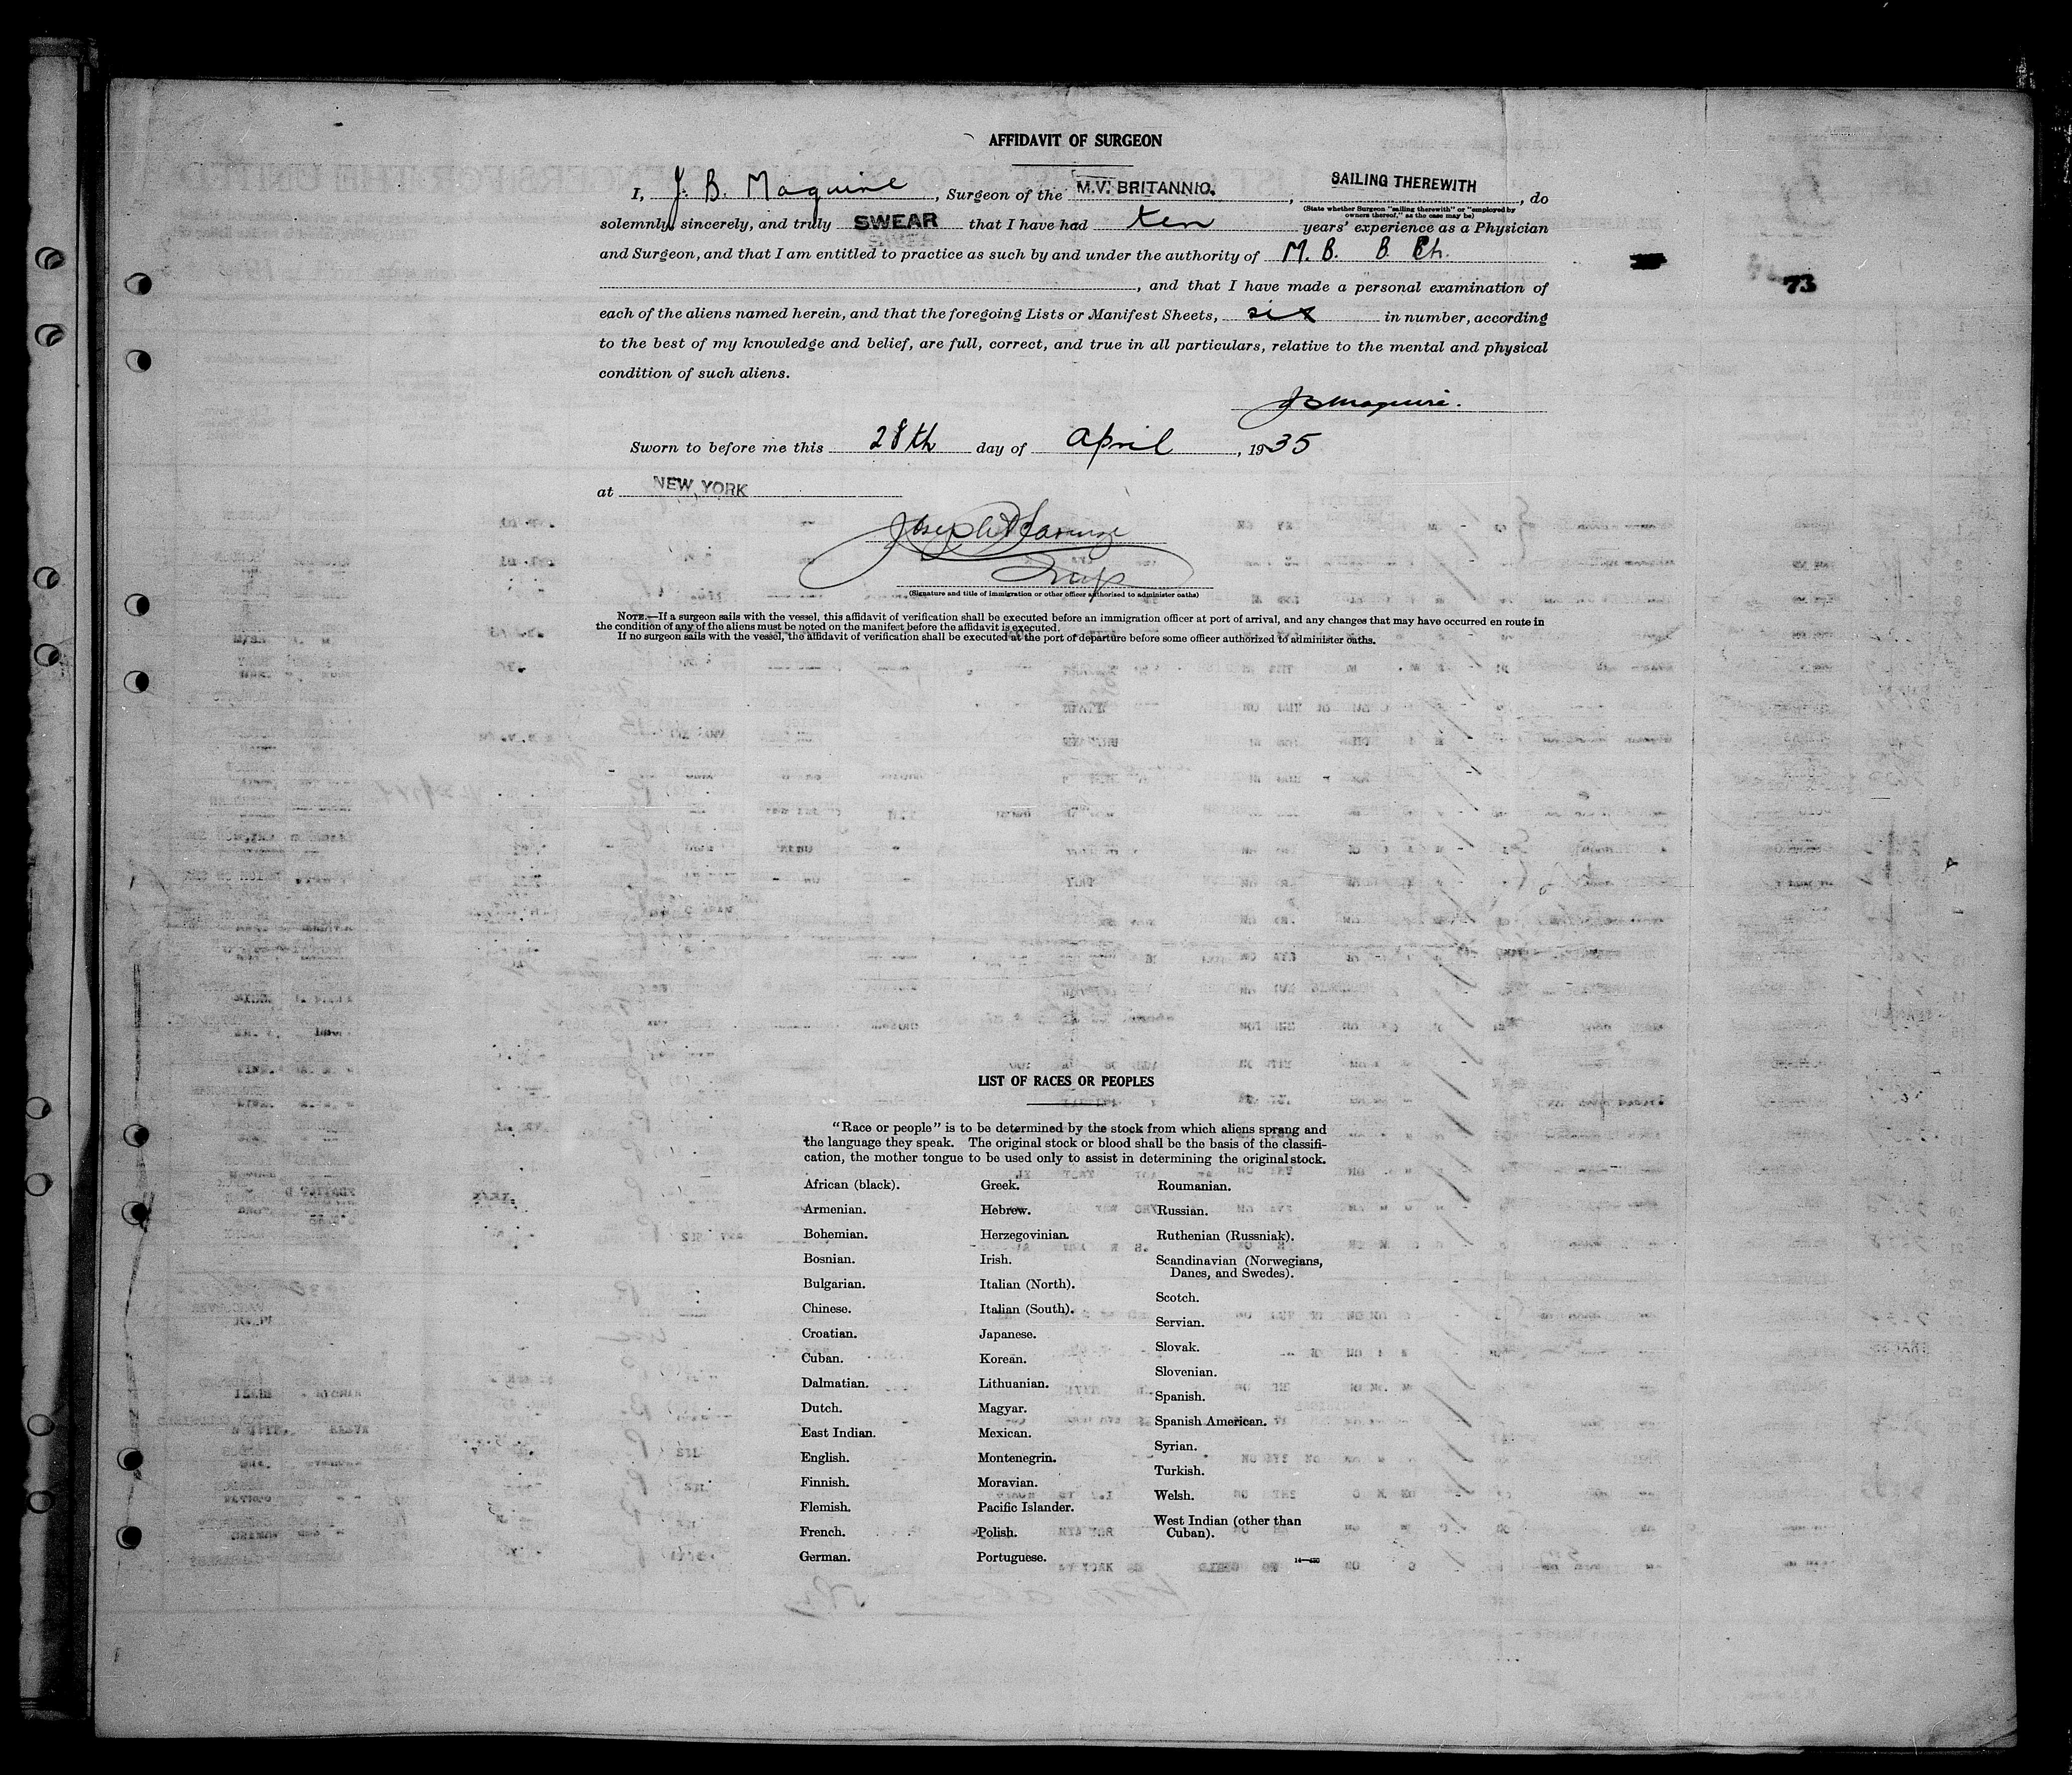 AFFIDAVIT OF SURGEON
I, J. B. Maguire, Surgeon of the M.V. BRITANNIC., SAILING THEREWITH, do
(State whether Surgeon "sailing therewith" or "employed by
owners thereof," as the case may be)
solemnly, sincerely, and truly SWEAR that I have had ten years' experience as a Physician
and Surgeon, and that I am entitled to practice as such by and under the authority of M. B. B. Ch.
, and that I have made a personal examination of
73
each of the aliens named herein, and that the foregoing Lists or Manifest Sheets, six in number, according
to the best of my knowledge and belief, are full, correct, and true in all particulars, relative to the mental and physical
condition of such aliens.
JB Maguire.
Sworn to before me this 28th day of April, 1935
at NEW YORK
Joseph
(Signature and title of immigration or other officer authorized to administer oaths)
NOTE.—If a surgeon sails with the vessel, this affidavit of verification shall be executed before an immigration officer at port of arrival, and any changes that may have occurred en route in
the condition of any of the aliens must be noted on the manifest before the affidavit is executed.
If no surgeon sails with the vessel, the affidavit of verification shall be executed at the port of departure before some officer authorized to administer oaths.
LIST OF RACES OR PEOPLES
"Race or people" is to be determined by the stock from which aliens sprang and
the language they speak. The original stock or blood shall be the basis of the classifi-
cation, the mother tongue to be used only to assist in determining the original stock.
African (black).
Armenian.
Bohemian.
Bosnian.
Bulgarian.
Chinese.
Croatian.
Cuban.
Dalmatian.
Dutch.
East Indian.
English.
Finnish.
Flemish.
French.
German.
Greek.
Hebrew.
Herzegovinian.
Irish.
Italian (North).
Italian (South).
Japanese.
Korean.
Lithuanian.
Magyar.
Mexican.
Montenegrin.
Moravian.
Pacific Islander.
Polish.
Portuguese.
Roumanian.
Russian.
Ruthenian (Russniak).
Scandinavian (Norwegians,
Danes, and Swedes).
Scotch.
Servian.
Slovak.
Slovenian.
Spanish.
Spanish American.
Syrian.
Turkish.
Welsh.
West Indian (other than
Cuban).